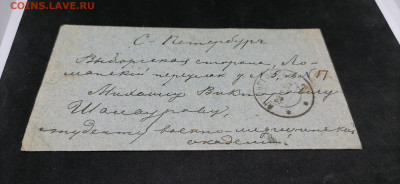 СОИНС.LAVE.RU
С-Петербургъ
Выборгская сторона, Ло-
манскій переулокъ д № 5, кв.
Михаилу Викторовичу
студенту военно-медицинской
академіи.